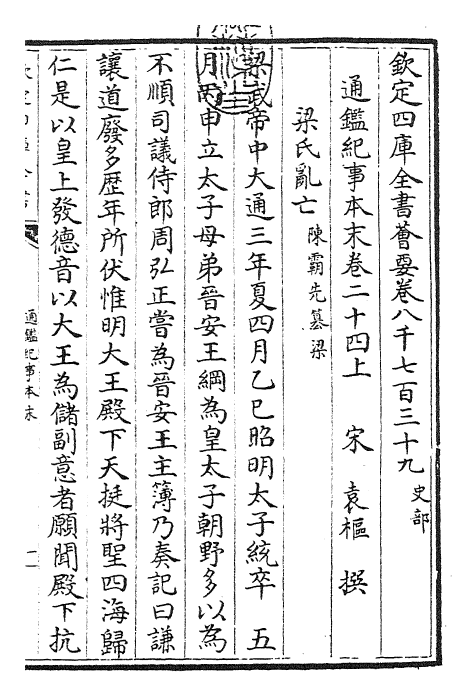 欽定四庫全書薈要卷八千七百三十九 史部
通鑑紀事本末卷二十四上 宋 袁樞 撰
梁氏亂亡 陳霸先篡梁
梁武帝中大通三年夏四月乙巳昭明太子統卒 五
月丙申立太子母弟晉安王綱為皇太子朝野多以為
不順司議侍郎周弘正嘗為晉安王主簿乃奏記曰謙
讓道廢多歴年所伏惟明大王殿下天挺將聖四海歸
仁是以皇上發德音以大王為儲副意者願聞殿下抗
通鑑紀事本末